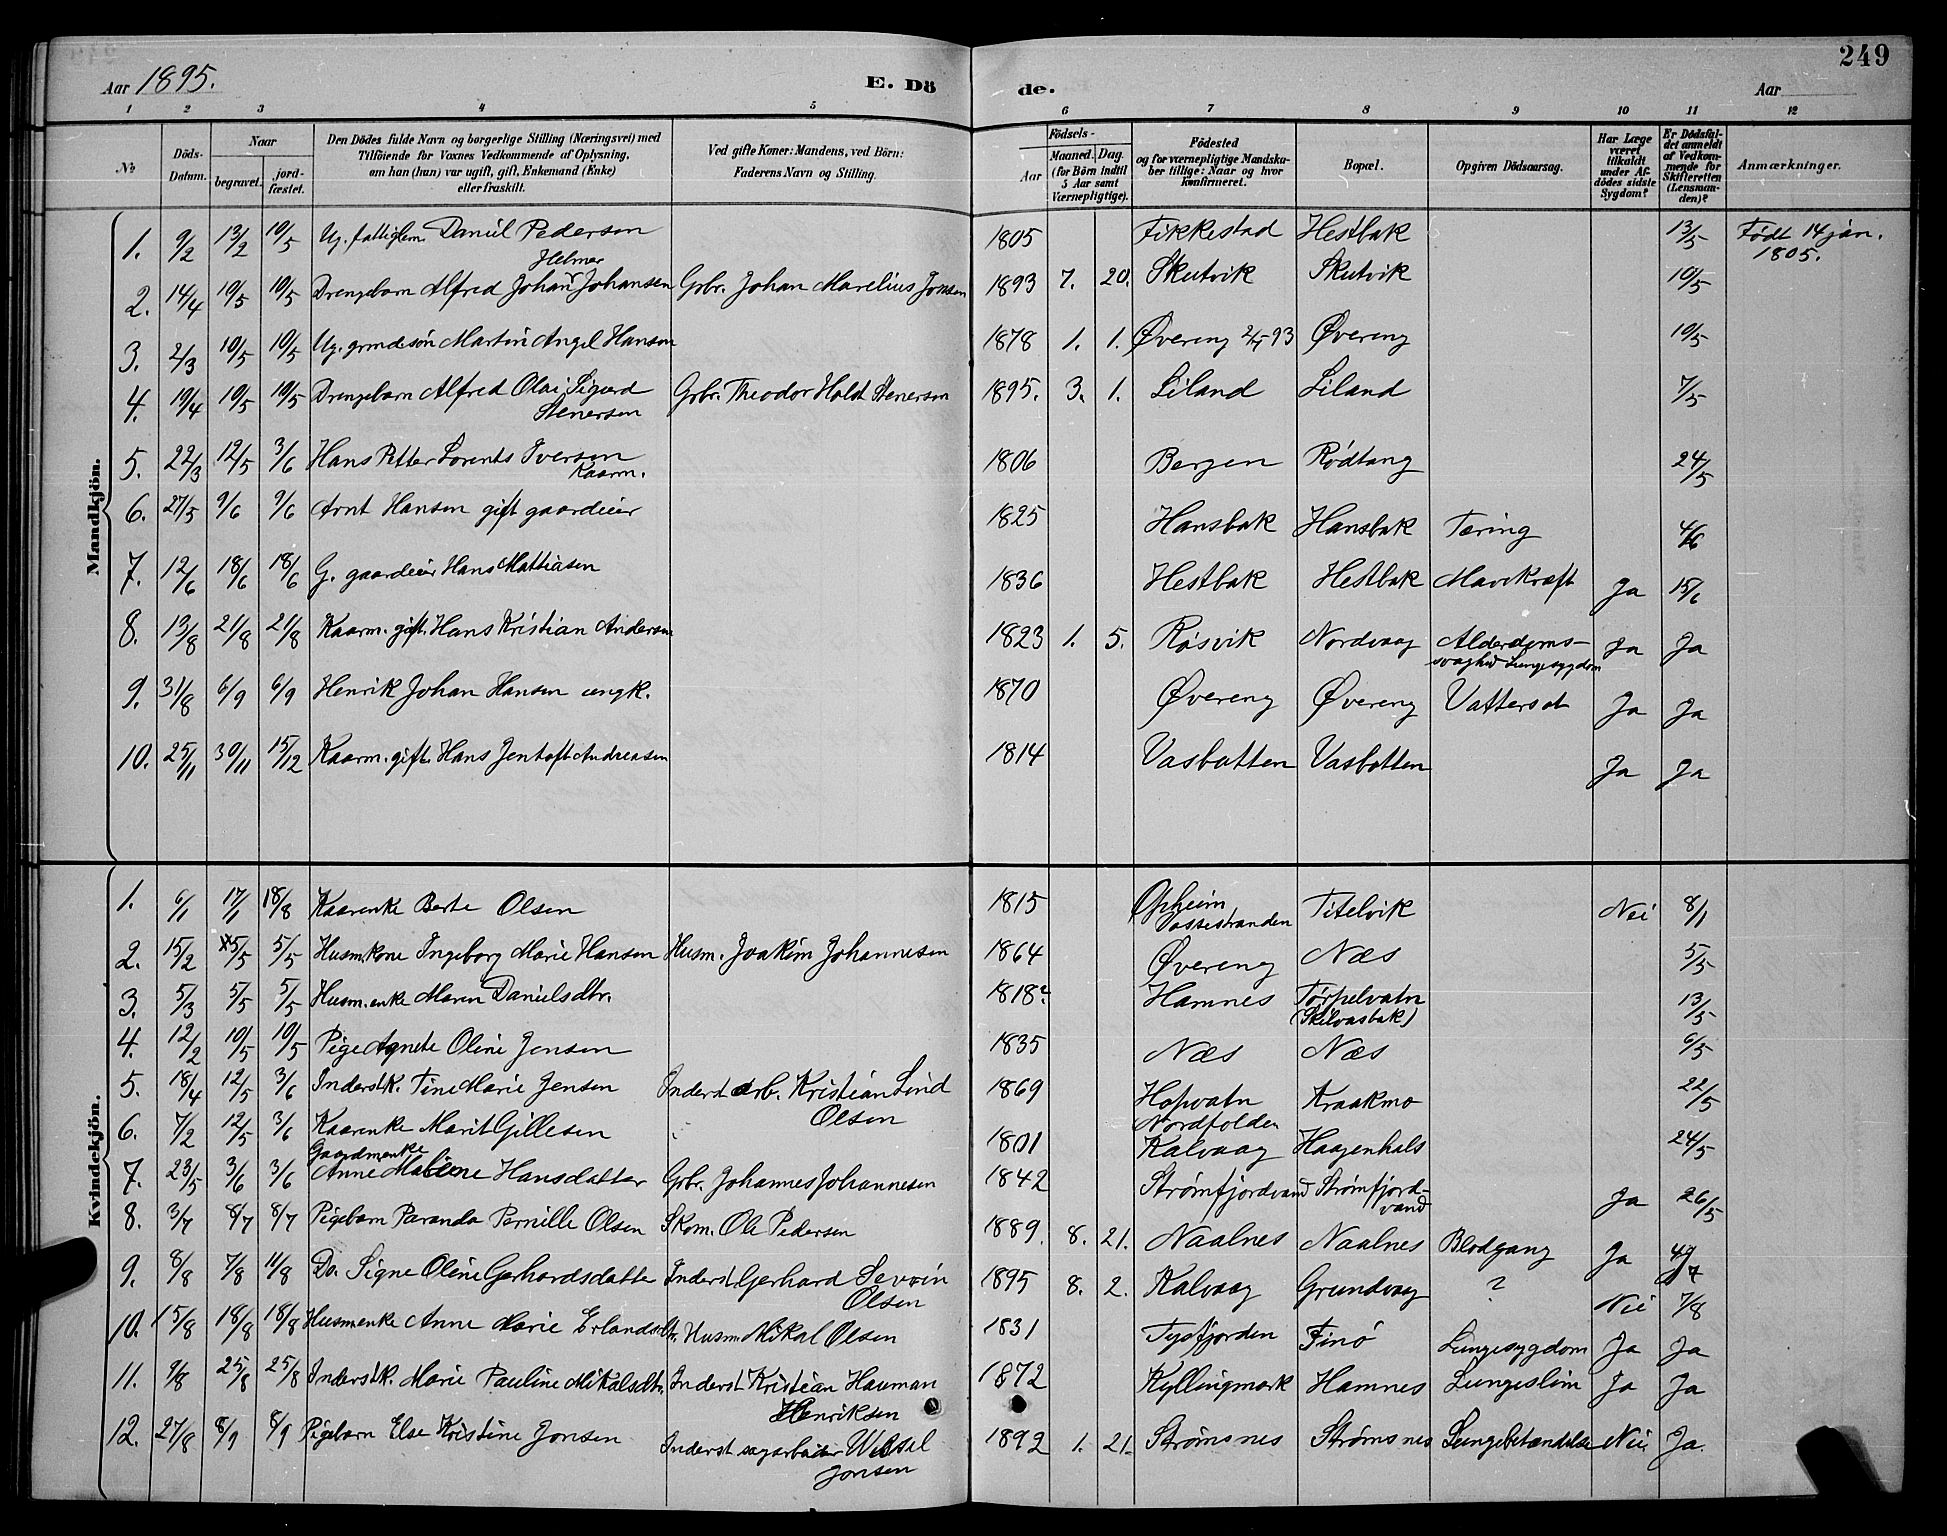 249
Aar 1895. E. Dö de. Aar
1 2 3 4 5 6 7 8 9 10 11 12
№ Döds-Datum. Naar begravet. jordfæstet. Den Dödes fulde Navn og borgerlige Stilling (Næringsvei) med Tilföiende for Voxnes Vedkommende af Oplysning, om han (hun) var ugift, gift, Enkemand (Enke) eller fraskilt. Ved gifte Koner: Mandens, ved Börn: Faderens Navn og Stilling. Födsels- Aar Maaned. Dag. (for Börn indtil 5 Aar samt Værnepligtige). Födested og for værnepligtige Mandskaber tillige: Naar og hvor konfirmeret. Bopæl. Opgiven Dödsaarsag. Har Læge været tilkaldt under Afdödes sidste Sygdom? Er Dödsfaldet anmeldt af Vedkommende for Skifteretten (Lensmanden)? Anmærkninger.
Mandkjön.
1. 9/2 13/2 10/5 Ug. fattiglem Daniel Pedersen 1805 Fikkestad Hestbak 13/5 Født 14 jan. 1805.
2. 14/4 10/5 10/5 Drengebarn Alfred Johan Helmer Johansen Grbr. Johan Marelius Jonsen 1893 7. 20. Skutvik Skutvik 10/5
3. 2/3 10/5 10/5 Ug. grmdsøn Martin Angel Hansen 1878 1. 1. Øvereng 2/7 93 Øvereng 10/5
4. 19/4 10/5 10/5 Drengebarn Alfred Olai Sigurd Stenersen Grbr. Theodor Holdt Stenersen 1895. 3. 1. Liland Liland 7/5
5. 22/3 12/5 3/6 Hans Petter Lorents Iversen Kaarm. 1806 Bergen Rødtang 24/5
6. 27/5 9/6 9/6 Arnt Hansen gift gaardeier 1825 Hansbak Hansbak Tæring 4/6
7. 12/6 18/6 18/6 G. gaardeier Hans Mattiasen 1836 Hestbak Hestbak Mavekræft Ja 15/6
8. 13/8 21/8 21/8 Kaarm. gift. Hans Kristian Andersen 1823 1. 5. Røsvik Nordvaag Alderdomssvaghed Lungesygdom Ja Ja
9. 31/8 6/9 6/9 Henrik Johan Hansen ungk. 1870 Øvereng Øvereng Vattersot Ja Ja
10. 25/11 30/11 15/12 Kaarm. gift. Hans Jentoft Andreasen 1814 Vasbotten Vasbotten Ja Ja
Kvindekjön.
1. 6/1 17/1 18/8 Kaarenke Berte Olsen 1815 Opheim Vossestranden Titelvik Nei 8/1
2. 15/2 5/5 5/5 Husm.kone Ingeborg Marie Hansen Husm. Joakim Johannesen 1864 Øvereng Næs 5/5
3. 5/3 5/5 5/5 Husm. enke Maren Danielsdtr. 1818 Hamnes Tørpelvatn (Skilvasbak) 13/5
4. 12/2 10/5 10/5 Pige Agnete Oline Jensen 1835 Næs Næs 6/5
5. 18/4 12/5 3/6 Inderstk. Tine Marie Jensen Inderst arb. Kristian Lind Olsen 1869 Hopvatn Kraakmo 22/5
6. 7/2 12/5 3/6 Kaarenke Marit Gillesen 1801 Nordfolden Kalvaag Haagenhals 24/5
7. 23/5 3/6 3/6 Gaardmenke Anne Malene Hansdatter Grbr. Johannes Johannesen 1842 Strømfjordvand Strømfjordvand Ja 26/5
8. 3/7 8/7 8/7 Pigebarn Paranda Pernille Olsen Skom. Ole Pedersen 1889. 8. 21. Naalnes Naalnes Blodgang Ja
9. 8/8 7/8 11/8 Do. Signe Oline Gerhardsdatter Inderst Gerhard Sevrin Olsen 1895 8. 2. Kalvaag Grundvaag ? Nei 7/8
10. 15/8 18/8 18/8 Husmenke Anne Marie Erlandsdtr. Husm Mikal Olsen 1831 Tysfjorden Finø Lungesygdom Ja Ja
11. 9/8 25/8 25/8 Inderstk. Marie Pauline Mikalsdtr. Inderst Kristian Hauman Henriksen 1872 Kyllingmark Hamnes Lungeslim Ja Ja
12. 27/8 8/9 8/9 Pigebarn Else Kristine Jonsen Inderst sagarbeider Wessel Jonsen 1892 1. 21. Strømsnes Strømsnes Lungebetændelse Nei Ja.